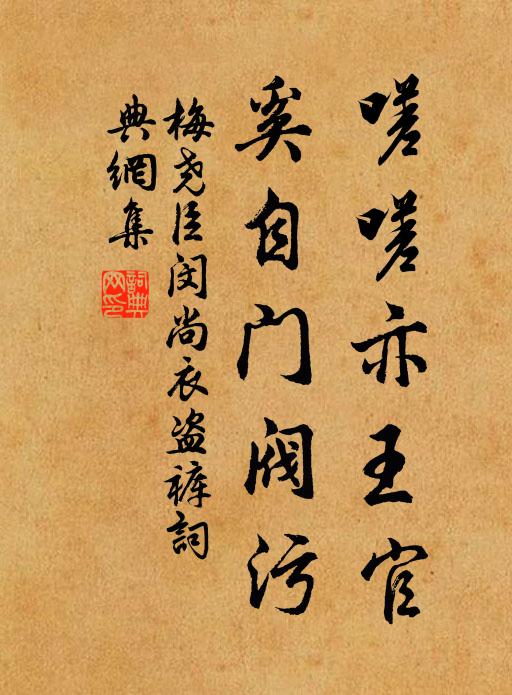 嗟嗟亦王官
奚自门阀污
梅尧臣闵尚衣盗裤詞
典網集
詞典
网印